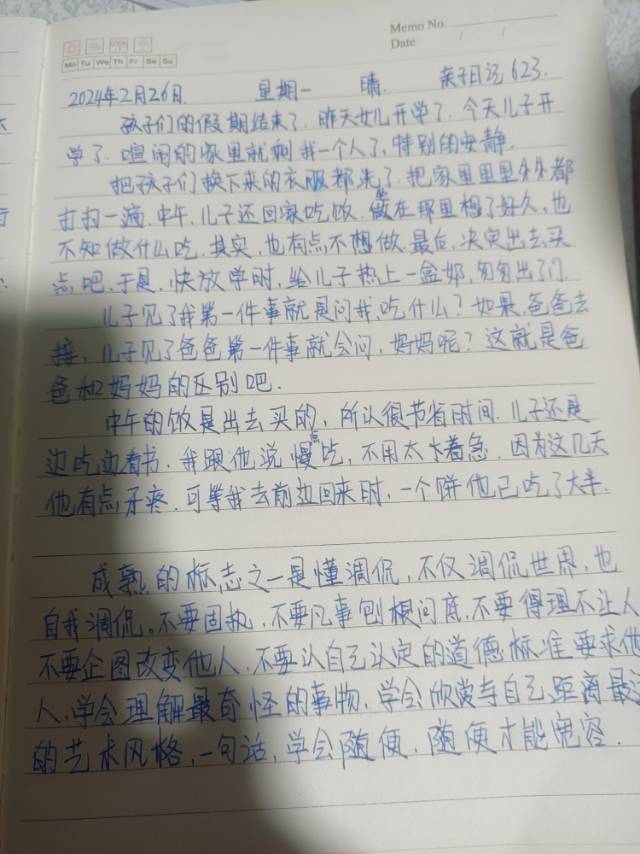 Memo No.
Date / /
Mo Tu We Th Fr Sa Su
2024年2月26日. 星期一 晴. 亲子日记623.
孩子们的假期结束了. 昨天女儿开学了. 今天儿子开
学了. 喧闹的家里就剩我一个人了, 特别的安静.
把孩子们换下来的衣服都洗了. 把家里里里外外都
打扫一遍. 中午, 儿子还回家吃饭. 坐在那里想了好久, 也
不知做什么吃. 其实, 也有点不想做. 最后, 决定出去买
点吧. 于是, 快放学时, 给儿子热上一盒奶, 匆匆出了门.
儿子见了我第一件事就是问我吃什么? 如果, 爸爸去
接, 儿子见了爸爸第一件事就会问, 妈妈呢? 这就是爸
爸和妈妈的区别吧.
中午的饭是出去买的, 所以很节省时间. 儿子还是
边吃边看书. 我跟他说慢点吃, 不用太着急. 因为这几天
他有点牙疼. 可等我去前边回来时, 一个饼他已吃了大半.
成熟的标志之一是懂调侃, 不仅调侃世界, 也
自我调侃。不要固执. 不要凡事刨根问底, 不要得理不让人
不要企图改变他人. 不要以自己认定的道德标准要求他
人. 学会理解最奇怪的事物, 学会欣赏与自己距离最
的艺术风格, 一句话, 学会随便, 随便才能宽容.